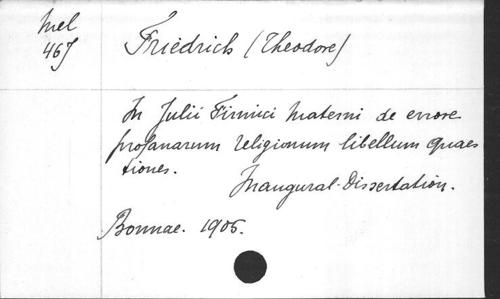 Mel
467
Friedrich (Theodore)
In Julii Firmici Materni de errore
profanarum religionum libellum Quaes
tiones.
Inaugural-Dissertation.
Bonnae. 1905.